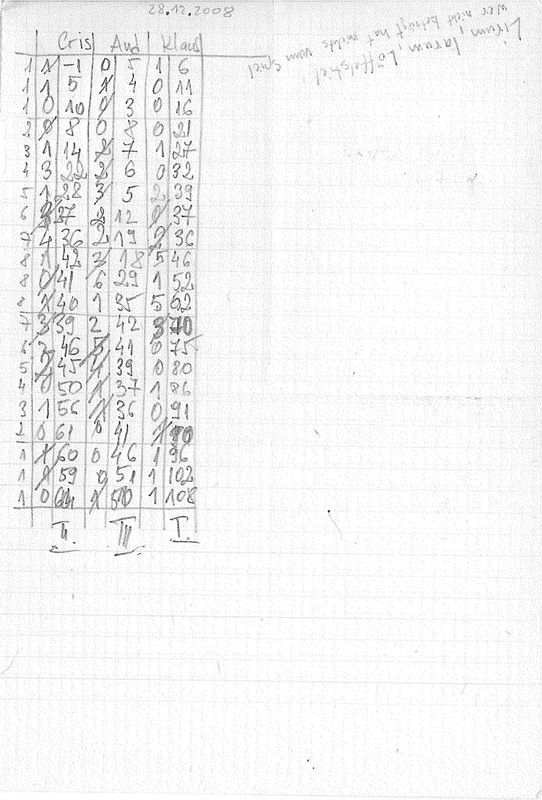 28.12.2008
Cris And Klaus
1 1 -1 0 5 1 6
1 1 5 1 4 0 11
1 0 10 0 3 0 16
2 0 8 0 8 0 21
3 1 14 2 7 1 27
4 3 22 2 6 0 32
5 1 28 3 5 2 39
6 3 37 2 12 0 37
7 4 36 2 19 2 36
8 1 42 3 18 5 46
8 0 41 6 29 1 52
8 1 40 1 35 5 62
7 3 39 2 42 3 70
6 2 46 5 41 0 75
5 2 45 4 39 0 80
4 0 50 1 37 1 86
3 1 56 1 36 0 91
2 0 61 0 41 1 90
1 1 60 0 46 1 96
1 1 59 0 51 1 102
1 0 64 1 50 1 108
II. III I.
Lirum, larum, Löffelstiel
wer nicht betrügt hat nichts vom Spiel